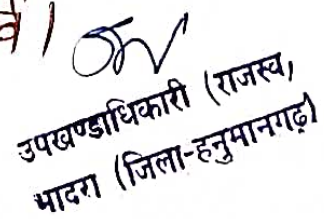 वे।
उपखण्डाधिकारी (राजस्व,
भादरा (जिला-हनुमानगढ़)